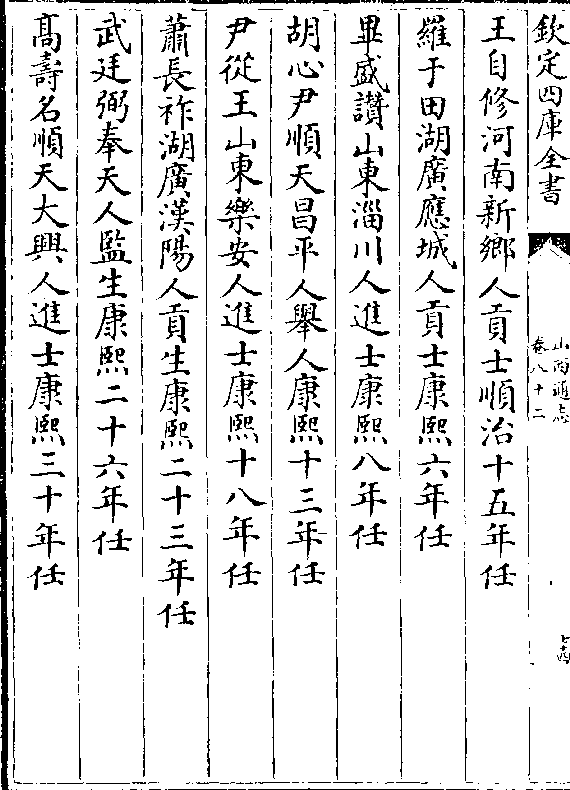 欽定四庫全書
山西通志
卷八十二
七十四
王自修河南新鄉人貢士順治十五年任
羅于田湖廣應城人貢士康熙六年任
畢盛讚山東淄川人進士康熙八年任
胡心尹順天昌平人舉人康熙十三年任
尹從王山東樂安人進士康熙十八年任
蕭長祚湖廣漢陽人貢生康熙二十三年任
武廷弼奉天人監生康熙二十六年任
髙壽名順天大興人進士康熙三十年任